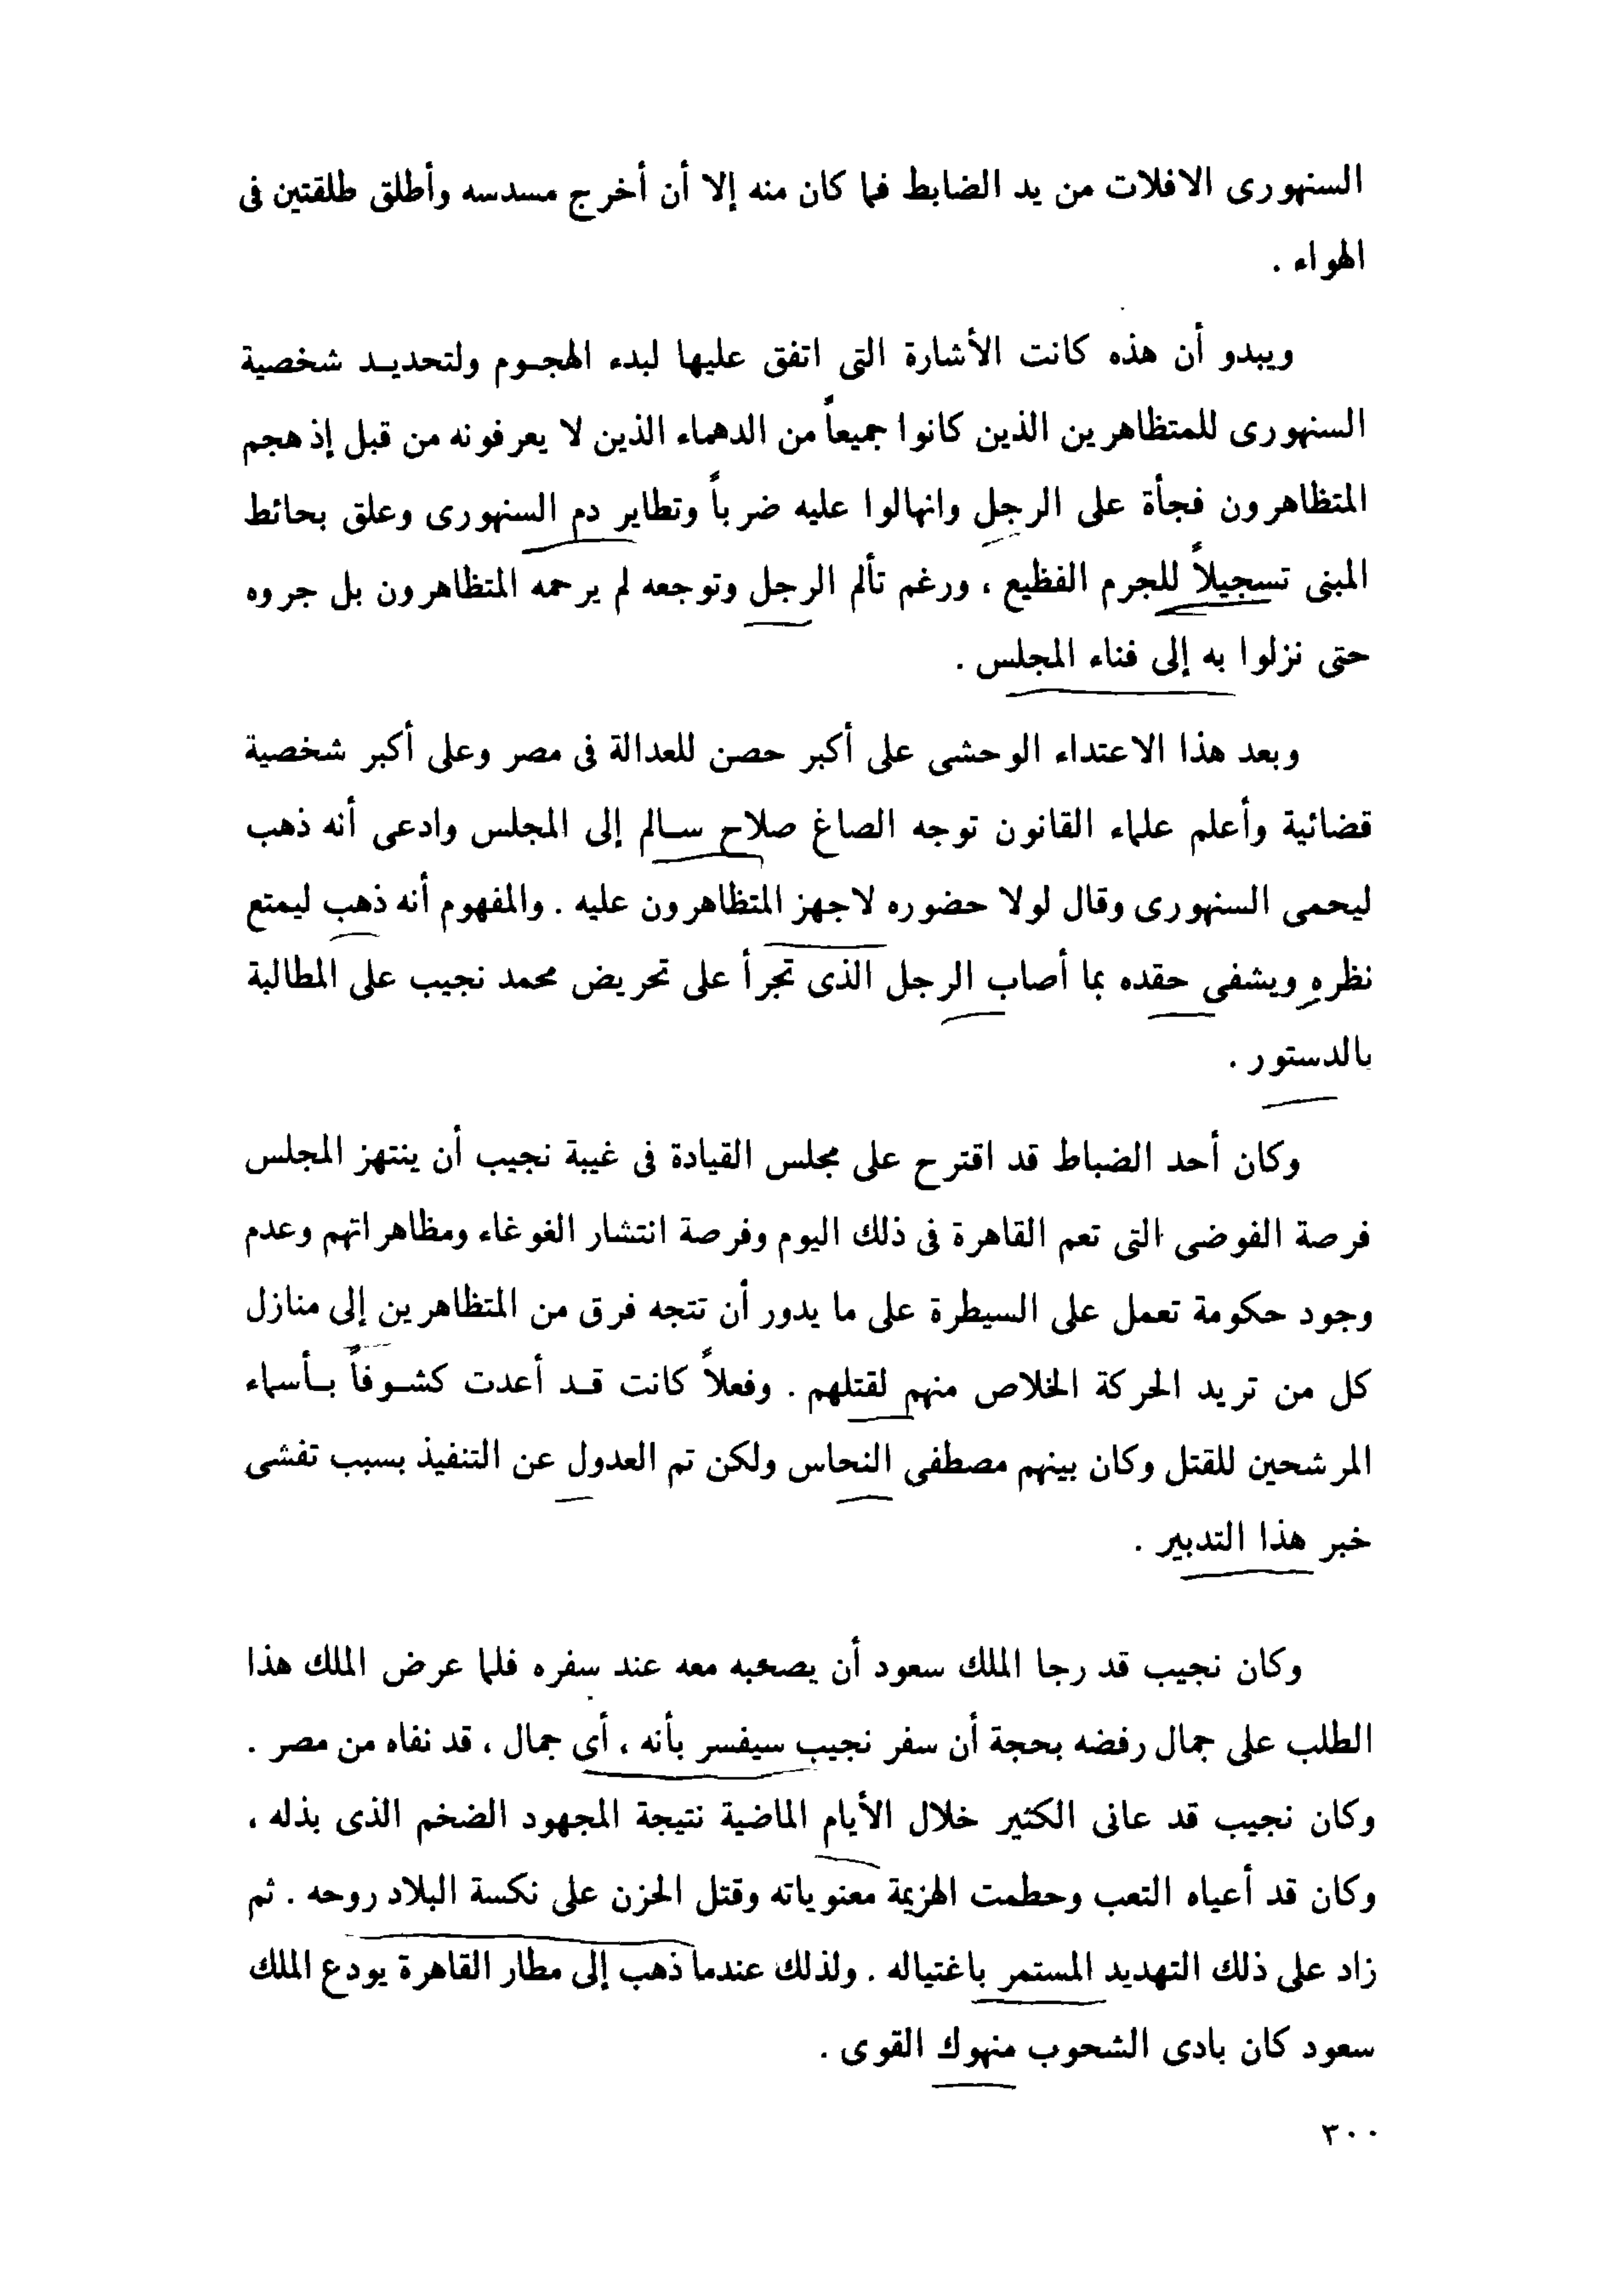 السنهورى الافلات من يد الضابط فما كان منه إلا أن أخرج مسدسه وأطلق طلقتين فى
الهواء .
ويبدو أن هذه كانت الأشارة التى اتفق عليها لبدء الهجـوم ولتحديـد شخصية
السنهورى للمتظاهرين الذين كانوا جميعاً من الدهماء الذين لا يعرفونه من قبل إذ هجم
المتظاهرون فجأة على الرجل وانهالوا عليه ضرباً وتطاير دم السنهورى وعلق بحائط
المبنى تسجيلاً للجرم الفظيع ، ورغم تألم الرجل وتوجعه لم يرحمه المتظاهرون بل جروه
حتى نزلوا به إلى فناء المجلس .
وبعد هذا الاعتداء الوحشى على أكبر حصن للعدالة فى مصر وعلى أكبر شخصية
قضائية وأعلم علماء القانون توجه الصاغ صلاح سـالم إلى المجلس وادعى أنه ذهب
ليحمى السنهورى وقال لولا حضوره لاجهز المتظاهرون عليه . والمفهوم أنه ذهب ليمتع
نظره ويشفى حقده بما أصاب الرجل الذى تجرأ على تحريض محمد نجيب على المطالبة
بالدستور .
وكان أحد الضباط قد اقترح على مجلس القيادة فى غيبة نجيب أن ينتهز المجلس
فرصة الفوضى التى تعم القاهرة فى ذلك اليوم وفرصة انتشار الغوغاء ومظاهراتهم وعدم
وجود حكومة تعمل على السيطرة على ما يدور أن تتجه فرق من المتظاهرين إلى منازل
كل من تريد الحركة الخلاص منهم لقتلهم . وفعلاً كانت قـد أعدت كشـوفاً بـأسماء
المرشحين للقتل وكان بينهم مصطفى النحاس ولكن تم العدول عن التنفيذ بسبب تفشى
خبر هذا التدبير .
وكان نجيب قد رجا الملك سعود أن يصحبه معه عند سفره فلما عرض الملك هذا
الطلب على جمال رفضه بحجة أن سفر نجيب سيفسر بأنه ، أى جمال ، قد نفاه من مصر .
وكان نجيب قد عانى الكثير خلال الأيام الماضية نتيجة المجهود الضخم الذى بذله ،
وكان قد أعياه التعب وحطمت الهزيمة معنوياته وقتل الحزن على نكسة البلاد روحه . ثم
زاد على ذلك التهديد المستمر باغتياله . ولذلك عندما ذهب إلى مطار القاهرة يودع الملك
سعود كان بادى الشحوب منهوك القوى .
٣٠٠